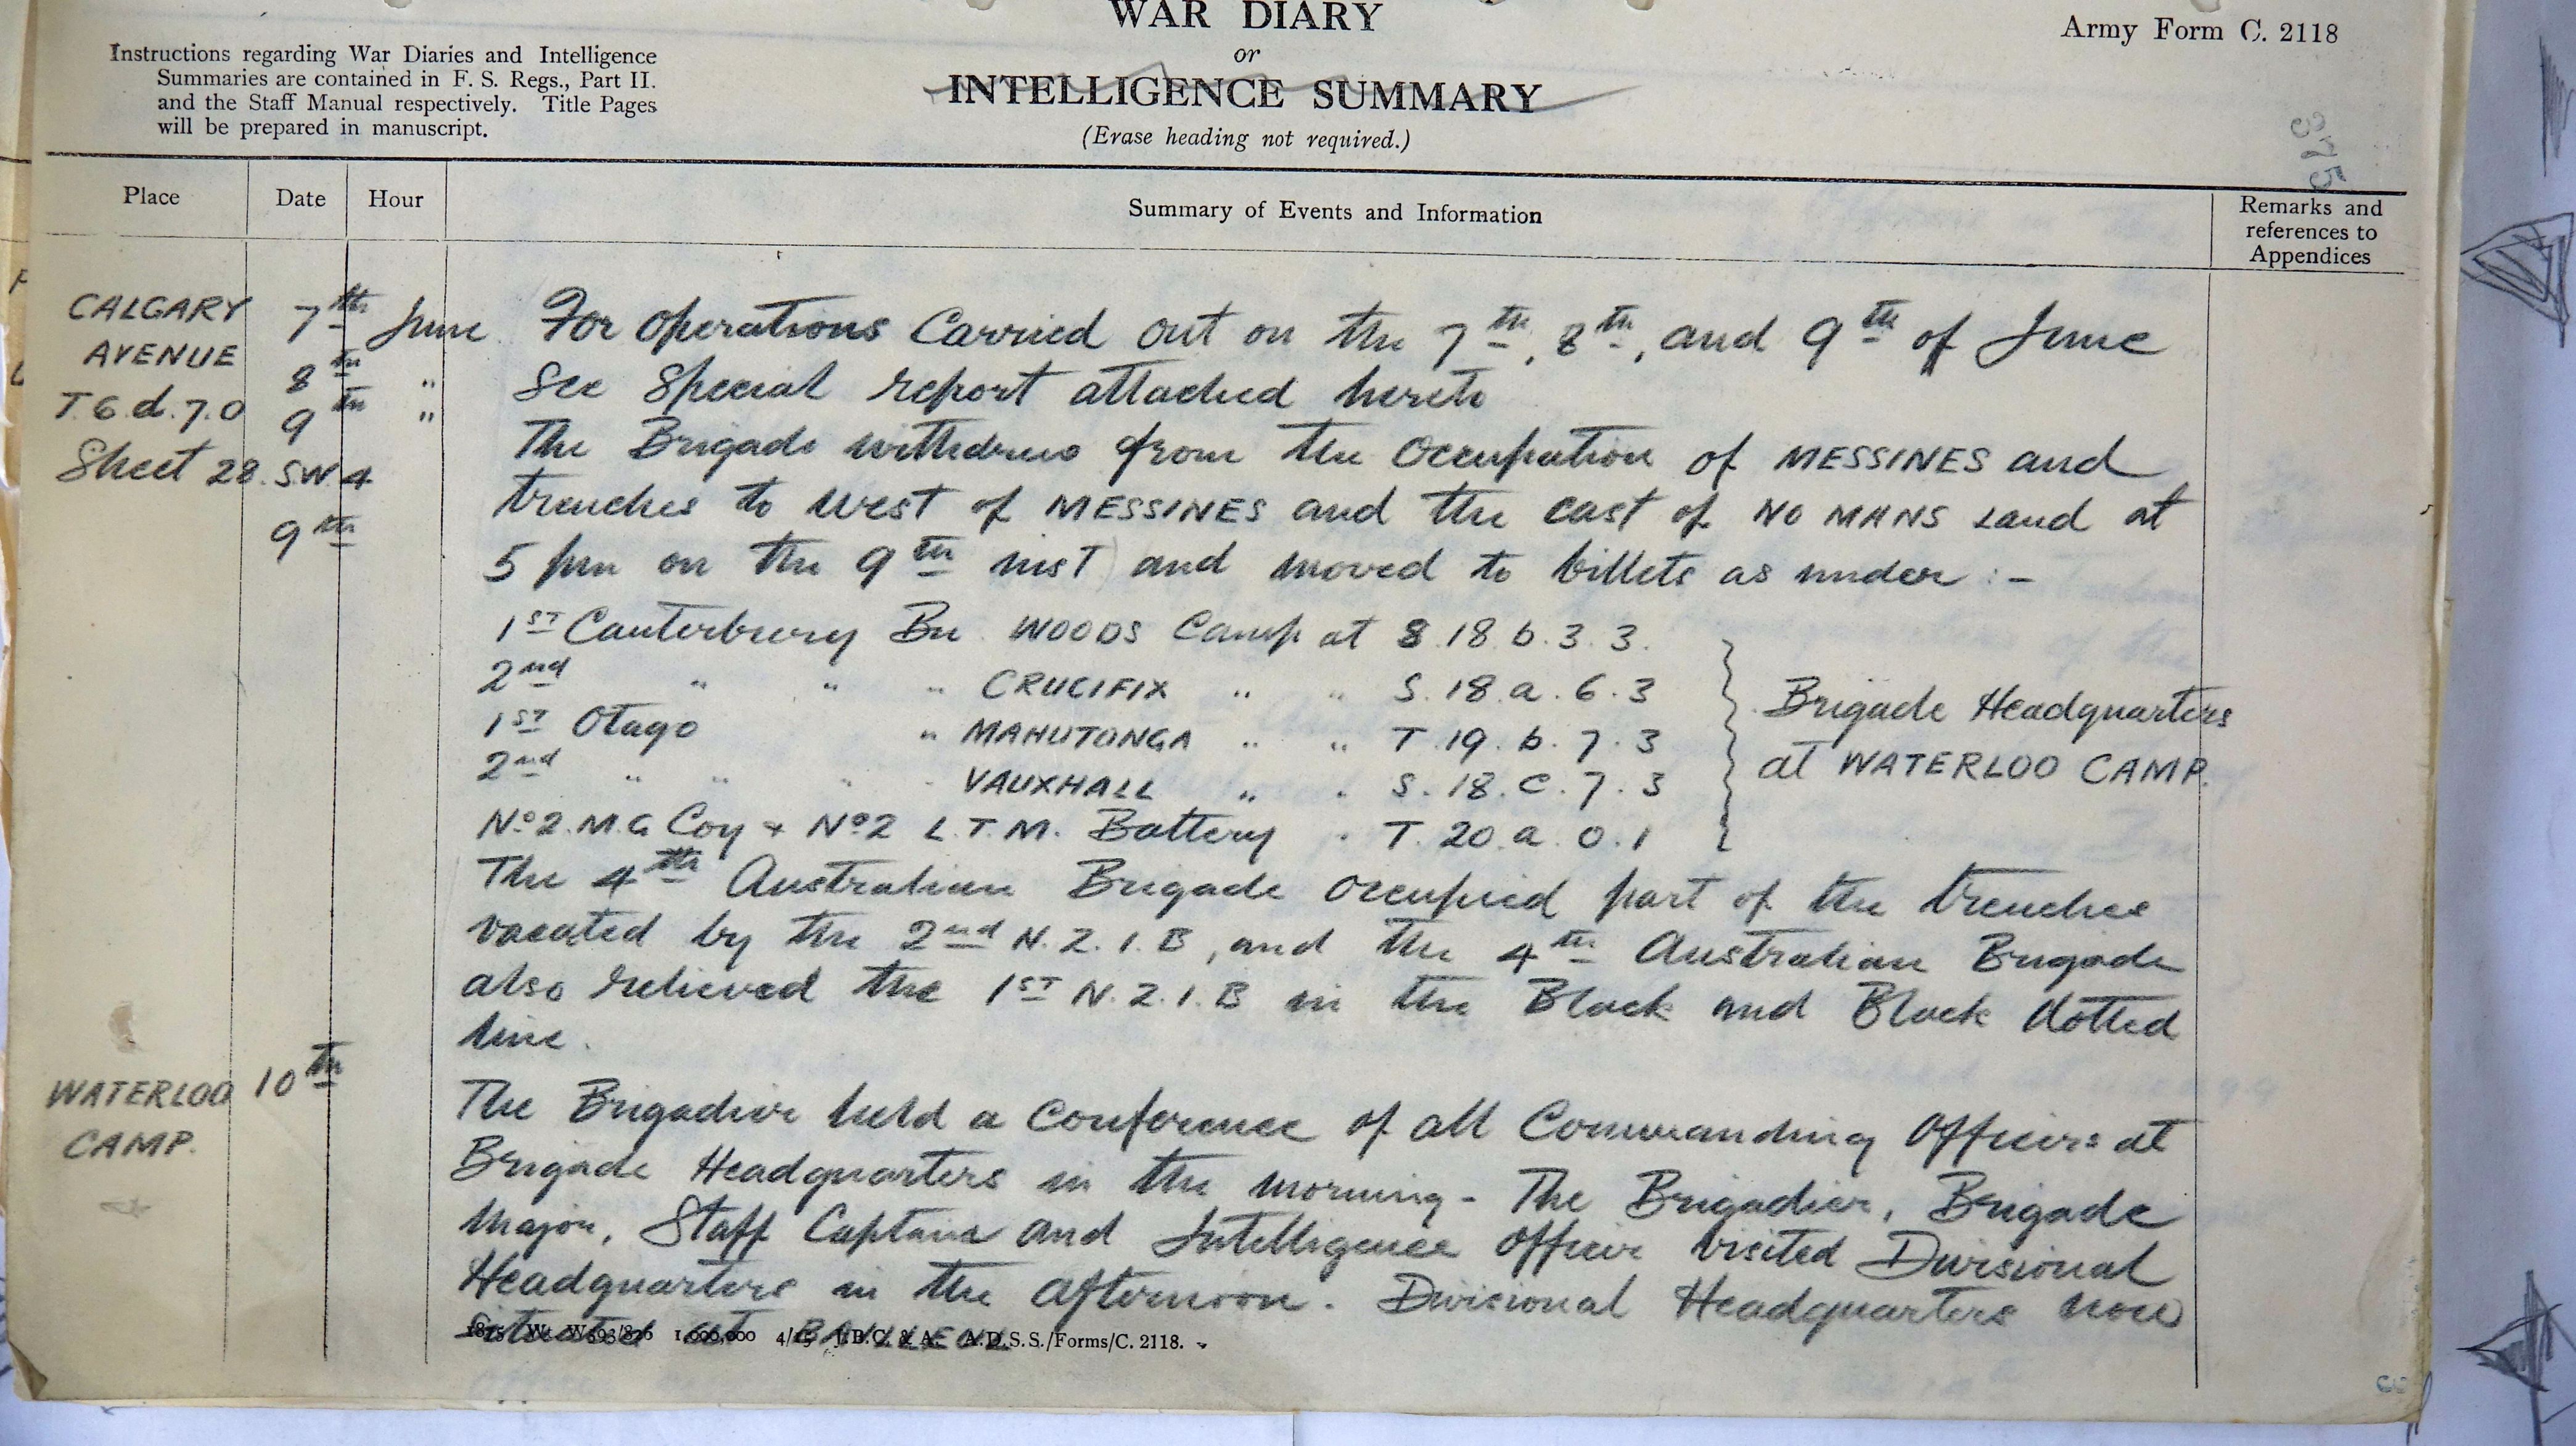 WAR DIARY
or
INTELLIGENCE SUMMARY
(Erase heading not required.)
Army Form C. 2118
Instructions regarding War Diaries and Intelligence
Summaries are contained in F. S. Regs., Part II.
and the Staff Manual respectively. Title Pages
will be prepared in manuscript.
375
Place
Date
Hour
Summary of Events and Information
Remarks and
references to
Appendices
CALGARY
AVENUE
T.6.d.7.0
Sheet 28.SW.4
7th June
8th "
9th "
For operations Carried out on the 7th, 8th, and 9th of June
See Special report attached hereto
9th
The Brigade withdrew from the Occupation of MESSINES and
trenches to West of MESSINES and the east of NO MANS Land at
5 pm on the 9th inst and moved to billets as under :-
1ST Canterbury Bn. WOODS Camp at S.18.b.3.3.
2nd " " " CRUCIFIX " " S.18.a.6.3
1ST Otago " MAHUTONGA " " T.19.b.7.3
2nd " " " " VAUXHALL " " S.18.C.7.3
No2.M.G Coy + No2 L.T.M. Battery " T.20.a.0.1
Brigade Headquarters
at WATERLOO CAMP.
The 4th Australian Brigade occupied part of the trenches
vacated by the 2nd N.Z.I.B, and the 4th Australian Brigade
also relieved the 1ST N.Z.I.B in the Black and Black dotted
line.
WATERLOO
CAMP.
10th
The Brigadier held a Conference of all Commanding Officers at
Brigade Headquarters in the morning - The Brigadier, Brigade
Major, Staff Captain and Intelligence Officer visited Divisional
Headquarters in the afternoon. Divisional Headquarters now
situated at BAILLEUL
1875 Wt. W593/826 1,000,000 4/15 J.B.C. & A. A.D.S.S./Forms/C. 2118.